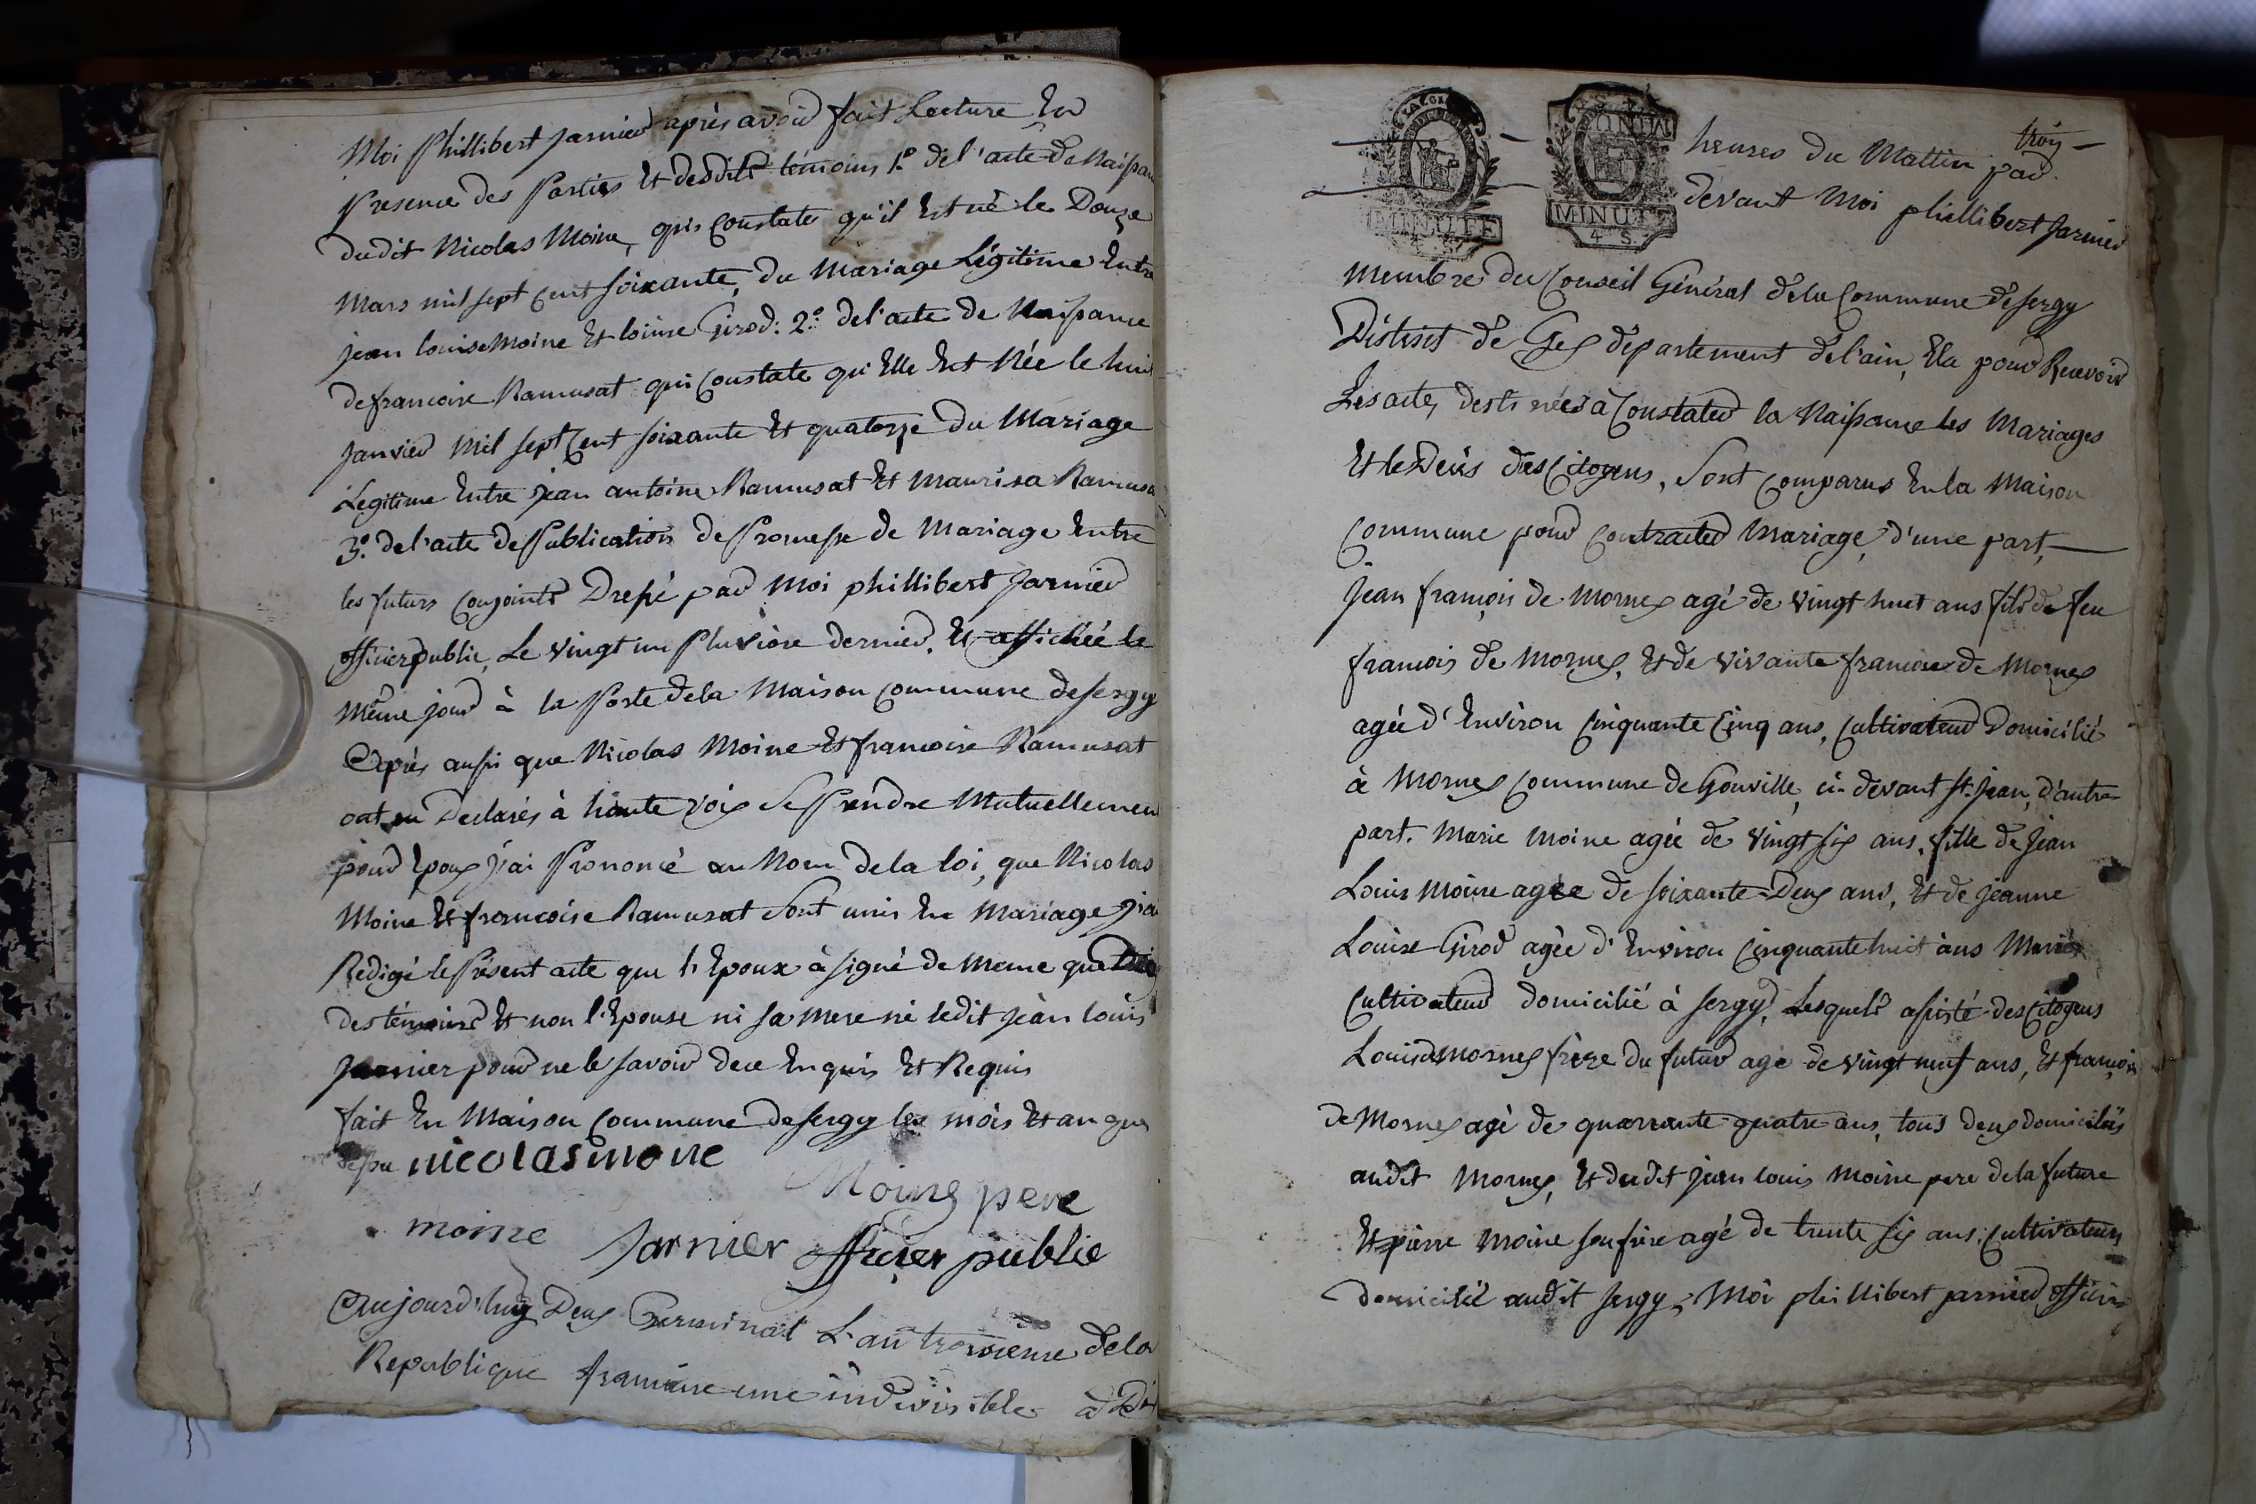 Moi Phillibert Jarnier après avoir fait Lecture En
Presence des Parties Et desdits temoins 1.° de l'acte de Naissan
dudit Nicolas Moine, qui Constate qu'il Est né le Douze
Mars mil sept Cent soixante, du Mariage Légitime Entre
jean louis Moine Et louise Girod: 2.° de l'acte de Naissance
de francoise Ramusat qui Constate qu'Elle Est Née le huit
Janvier Mil sept Cent soixante Et quatorze Du Mariage
Legitime Entre jean antoine Ramusat Et Maurisa Ramusa
3.° de l'acte de Publication de Promesse de Mariage Entre
les futurs Conjoints Dressé par Moi phillibert Jarnier
officier public, Le vingt un Pluviôse dernier, Et affichée le
même jour à la Porte de la Maison Commune de sergy
Après aussi que Nicolas Moine Et francoise Ramusat
ont eu Declarés à haute voix se Prendre Mutuellemen
pour Epoux j'ai Prononcé au Nom de la loi, que Nicolas
Moine Et francoise Ramusat Sont unis En Mariage Et j'ai
Redigé le Présent acte que l'Epoux à signé de Meme que
des témoins Et non l'Epouse ni sa mere ni ledit Jean louis
Jarnier pour ne le savoir de ce Enquis Et Requis
fait En Maison Commune de sergy les mois Et an que
nicolas moine
Moine pere
moine Jarnier officier public
Aujourd'huy Deux Germinal L'an troisieme de la
Republique francoise une indivisible à
MINUTE
MINUTE
4 S.
heures du Mattin par
troy
devant Moi phillibert Jarnier
membre du Conseil Général de la Commune de sergy
District de Gex département de l'ain, Ela pour Recevoir
Les actes destinées à Constater la Naissance les Mariages
Et le Décés des Citoyens, Sont Comparus En la Maison
Commune pour Contracter Mariage, d'une part,
Jean françois de Mornex agé de vingt huit ans fils de feu
francois de Mornex, Et de vivante francoise de Mornex
agée d'Environ Cinquante Cinq ans, Cultivateur Domicilié
à Mornex Commune de Gonville, ci-devant st. Jean, d'autre
part. Marie Moine agée de vingt six ans, fille de Jean
Louis Moine agée de soixante Deux ans, Et de Jeanne
Louise Girod agée d'Environ Cinquante huit ans Mariés
Cultivateur domicilié à sergy, Lesquels assisté des Citoyens
Louis de Mornex frère du futur agé de vingt neuf ans, Et françois
de Mornex agé de quarrante quatre ans, tous deux domiciliés
audit Mornex, Et dudit jean louis Moine pere de la future
Et pierre Moine son frère agé de trente six ans: Cultivateurs
domicilié audit sergy, Moi phillibert jarnier officier